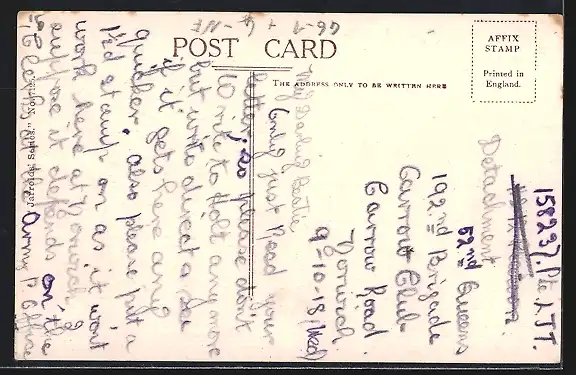 POST CARD
THE ADDRESS ONLY TO BE WRITTEN HERE
AFFIX
STAMP
Printed in
England.
Jarrolds' Series," Norwich.
158237. Pte
Detachment
52nd Queens
192nd Brigade
Carrow Club
Carrow Road.
Norwich.
9-10-18 (Wed)
My Darling
Only just Read your
letter, so please don't
write to Holt any more
but write direct &
if it gets here any
quicker, also please put a
1½d stamp on as it won't
work here at Norwich, I
suppose it depends on the
Army P Office